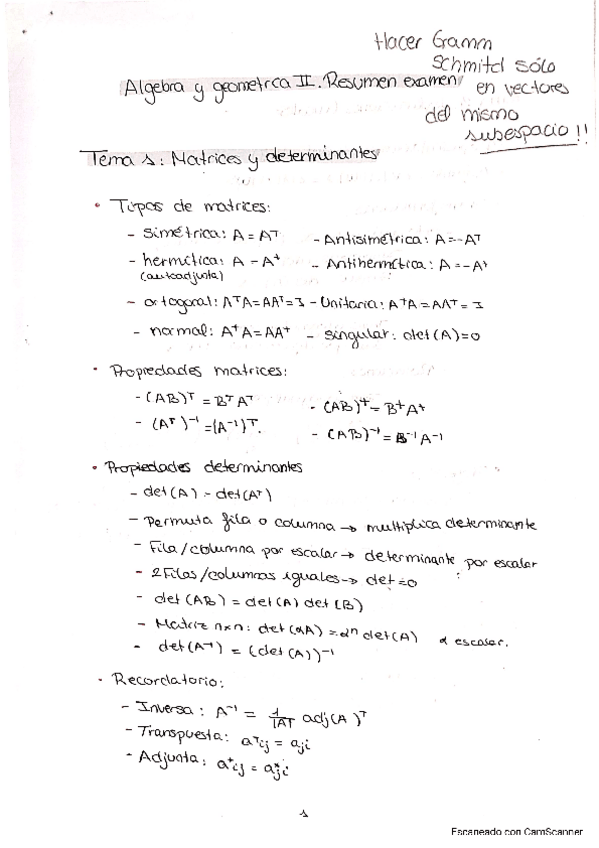 Hacer Gramm
Schmitd sólo
en vectores
del mismo
subespacio!!
Algebra y geometrica II. Resumen examen
Tema 1: Matrices y determinantes
• Tipos de matrices:
- simétrica: A = Aᵀ - Antisimétrica: A = -Aᵀ
- hermítica: A = A⁺ - Antihermítica: A = -A⁺
(autoadjunta)
- ortogonal: AᵀA = AAᵀ = I - Unitaria: A⁺A = AAᵀ = I
- normal: A⁺A = AA⁺ - singular: det(A) = 0
• Propiedades matrices:
- (AB)ᵀ = BᵀAᵀ - (AB)⁺ = B⁺A⁺
- (Aᵀ)⁻¹ = (A⁻¹)ᵀ. - (AB)⁻¹ = B⁻¹A⁻¹
• Propiedades determinantes
- det(A) = det(Aᵀ)
- Permuta fila o columna → multiplica determinante
- Fila/columna por escalar → determinante por escalar
- 2 Filas/columnas iguales → det = 0
- det(AB) = det(A) det(B)
- Matriz n×n: det(αA) = αⁿ det(A) α escalar.
- det(A⁻¹) = (det(A))⁻¹
• Recordatorio:
- Inversa: A⁻¹ = 1/|A| adj(A)ᵀ
- Transpuesta: aᵀij = aji
- Adjunta: a⁺ij = a*ji
1
Escaneado con CamScanner